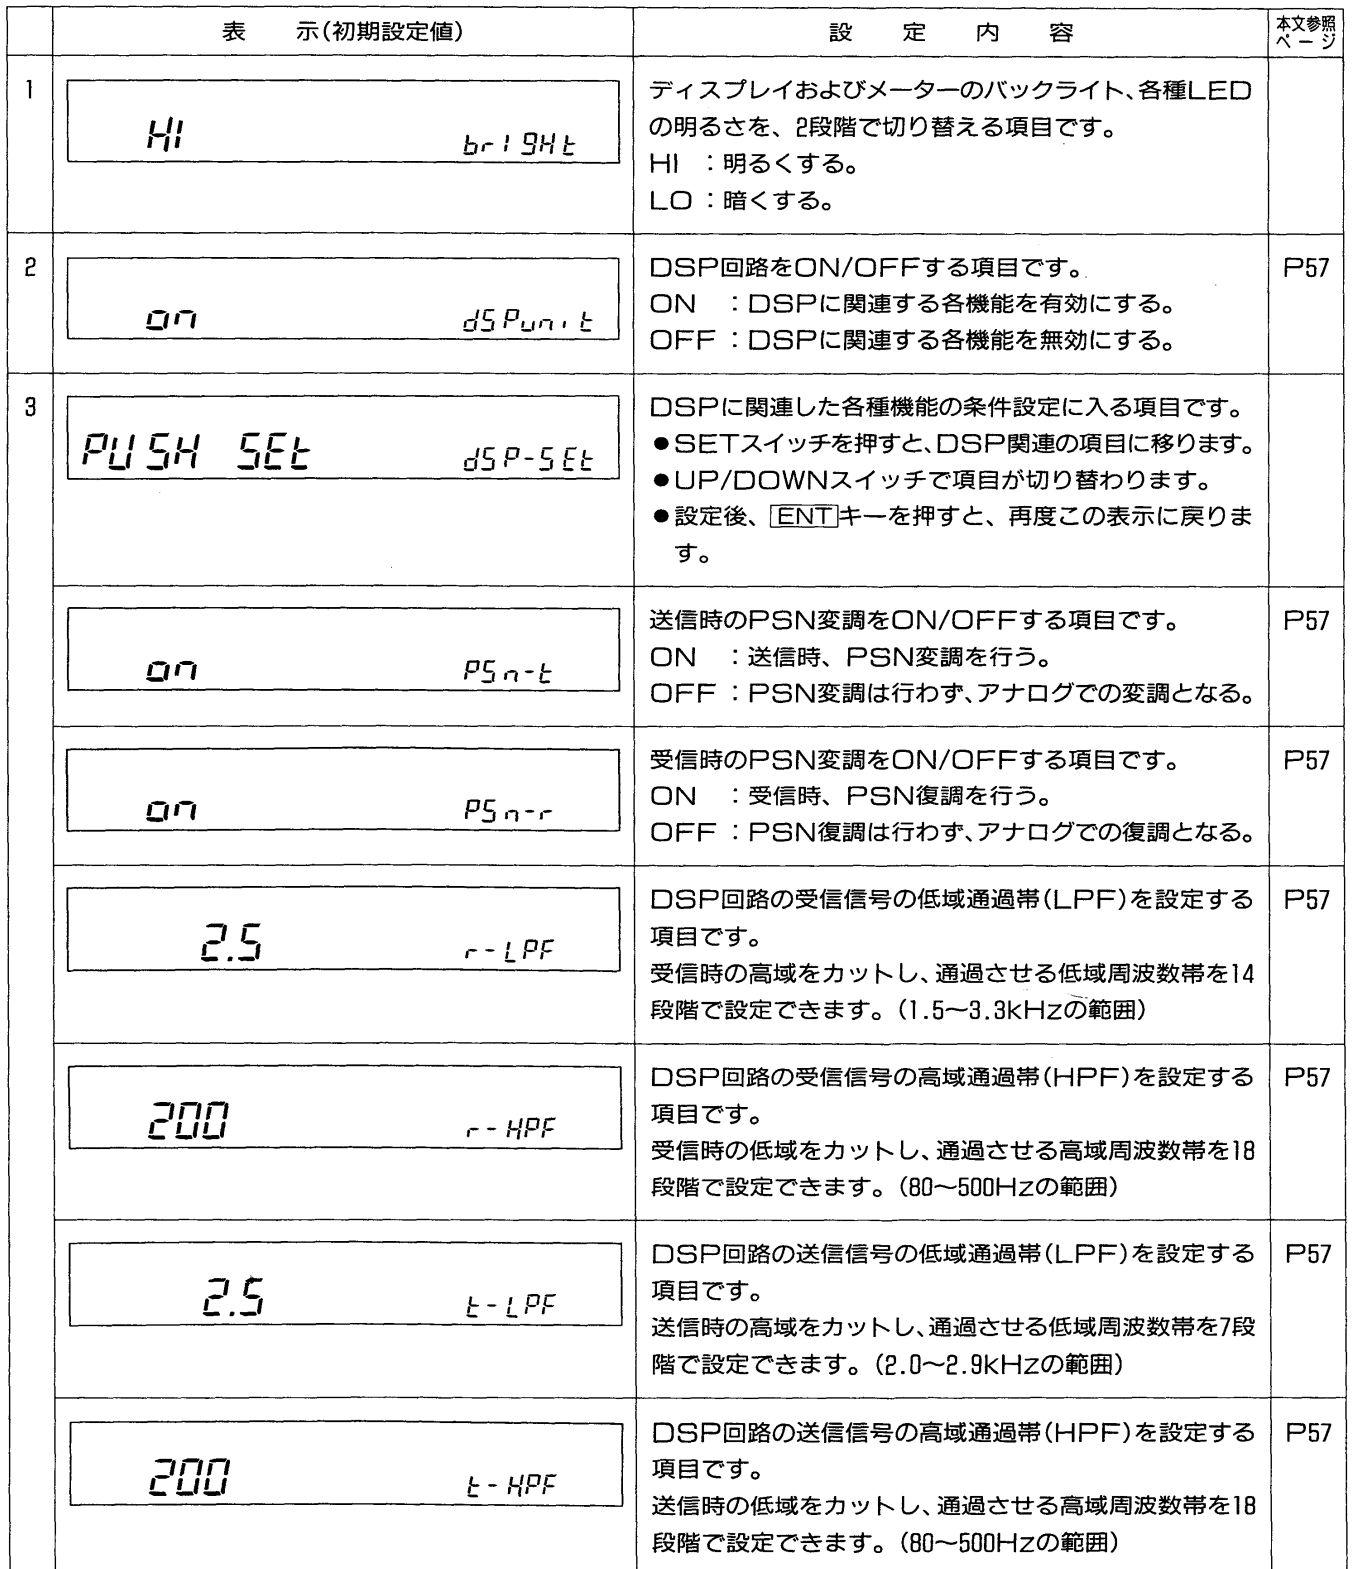 表 示(初期設定値) 設 定 内 容 本文参照
ページ
1
HI brigHt
ディスプレイおよびメーターのバックライト、各種LED
の明るさを、2段階で切り替える項目です。
HI :明るくする。
LO :暗くする。
2
on dSPunit
DSP回路をON/OFFする項目です。
ON :DSPに関連する各機能を有効にする。
OFF :DSPに関連する各機能を無効にする。
P57
3
PUSH SEt dSP-SEt
DSPに関連した各種機能の条件設定に入る項目です。
●SETスイッチを押すと、DSP関連の項目に移ります。
●UP/DOWNスイッチで項目が切り替わります。
●設定後、ENTキーを押すと、再度この表示に戻りま
す。
on PSn-t
送信時のPSN変調をON/OFFする項目です。
ON :送信時、PSN変調を行う。
OFF :PSN変調は行わず、アナログでの変調となる。
P57
on PSn-r
受信時のPSN変調をON/OFFする項目です。
ON :受信時、PSN復調を行う。
OFF :PSN復調は行わず、アナログでの復調となる。
P57
2.5 r-LPF
DSP回路の受信信号の低域通過帯(LPF)を設定する
項目です。
受信時の高域をカットし、通過させる低域周波数帯を14
段階で設定できます。(1.5〜3.3kHzの範囲)
P57
200 r-HPF
DSP回路の受信信号の高域通過帯(HPF)を設定する
項目です。
受信時の低域をカットし、通過させる高域周波数帯を18
段階で設定できます。(80〜500Hzの範囲)
P57
2.5 t-LPF
DSP回路の送信信号の低域通過帯(LPF)を設定する
項目です。
送信時の高域をカットし、通過させる低域周波数帯を7段
階で設定できます。(2.0〜2.9kHzの範囲)
P57
200 t-HPF
DSP回路の送信信号の高域通過帯(HPF)を設定する
項目です。
送信時の低域をカットし、通過させる高域周波数帯を18
段階で設定できます。(80〜500Hzの範囲)
P57